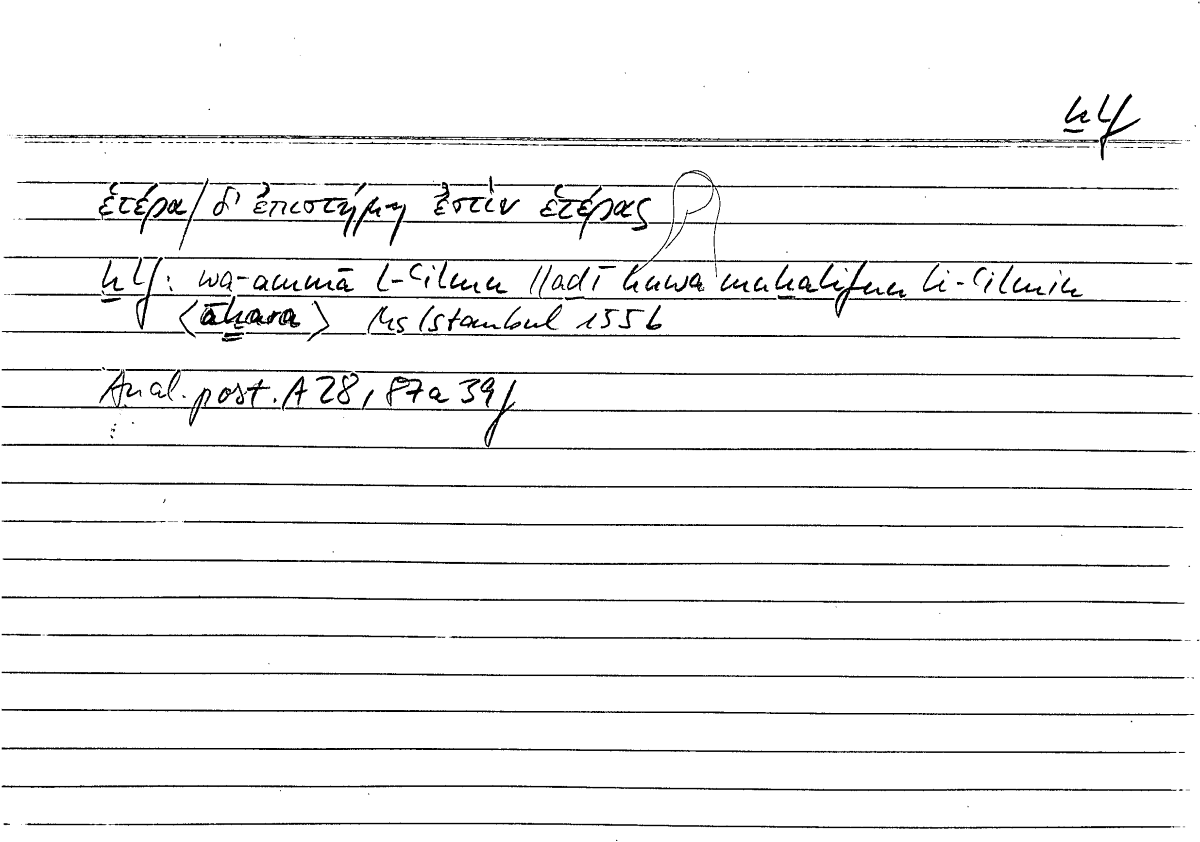 ḫlf
ἑτέρα/ δ' ἐπιστήμη ἐστὶν ἑτέρας
ḫlf: wa-ammā l-ʿilmu lladī huwa muḫalifun li-ʿilmin
〈āḫara〉 Ms Istanbul 155b
Anal. post. A 28, 87a 39f